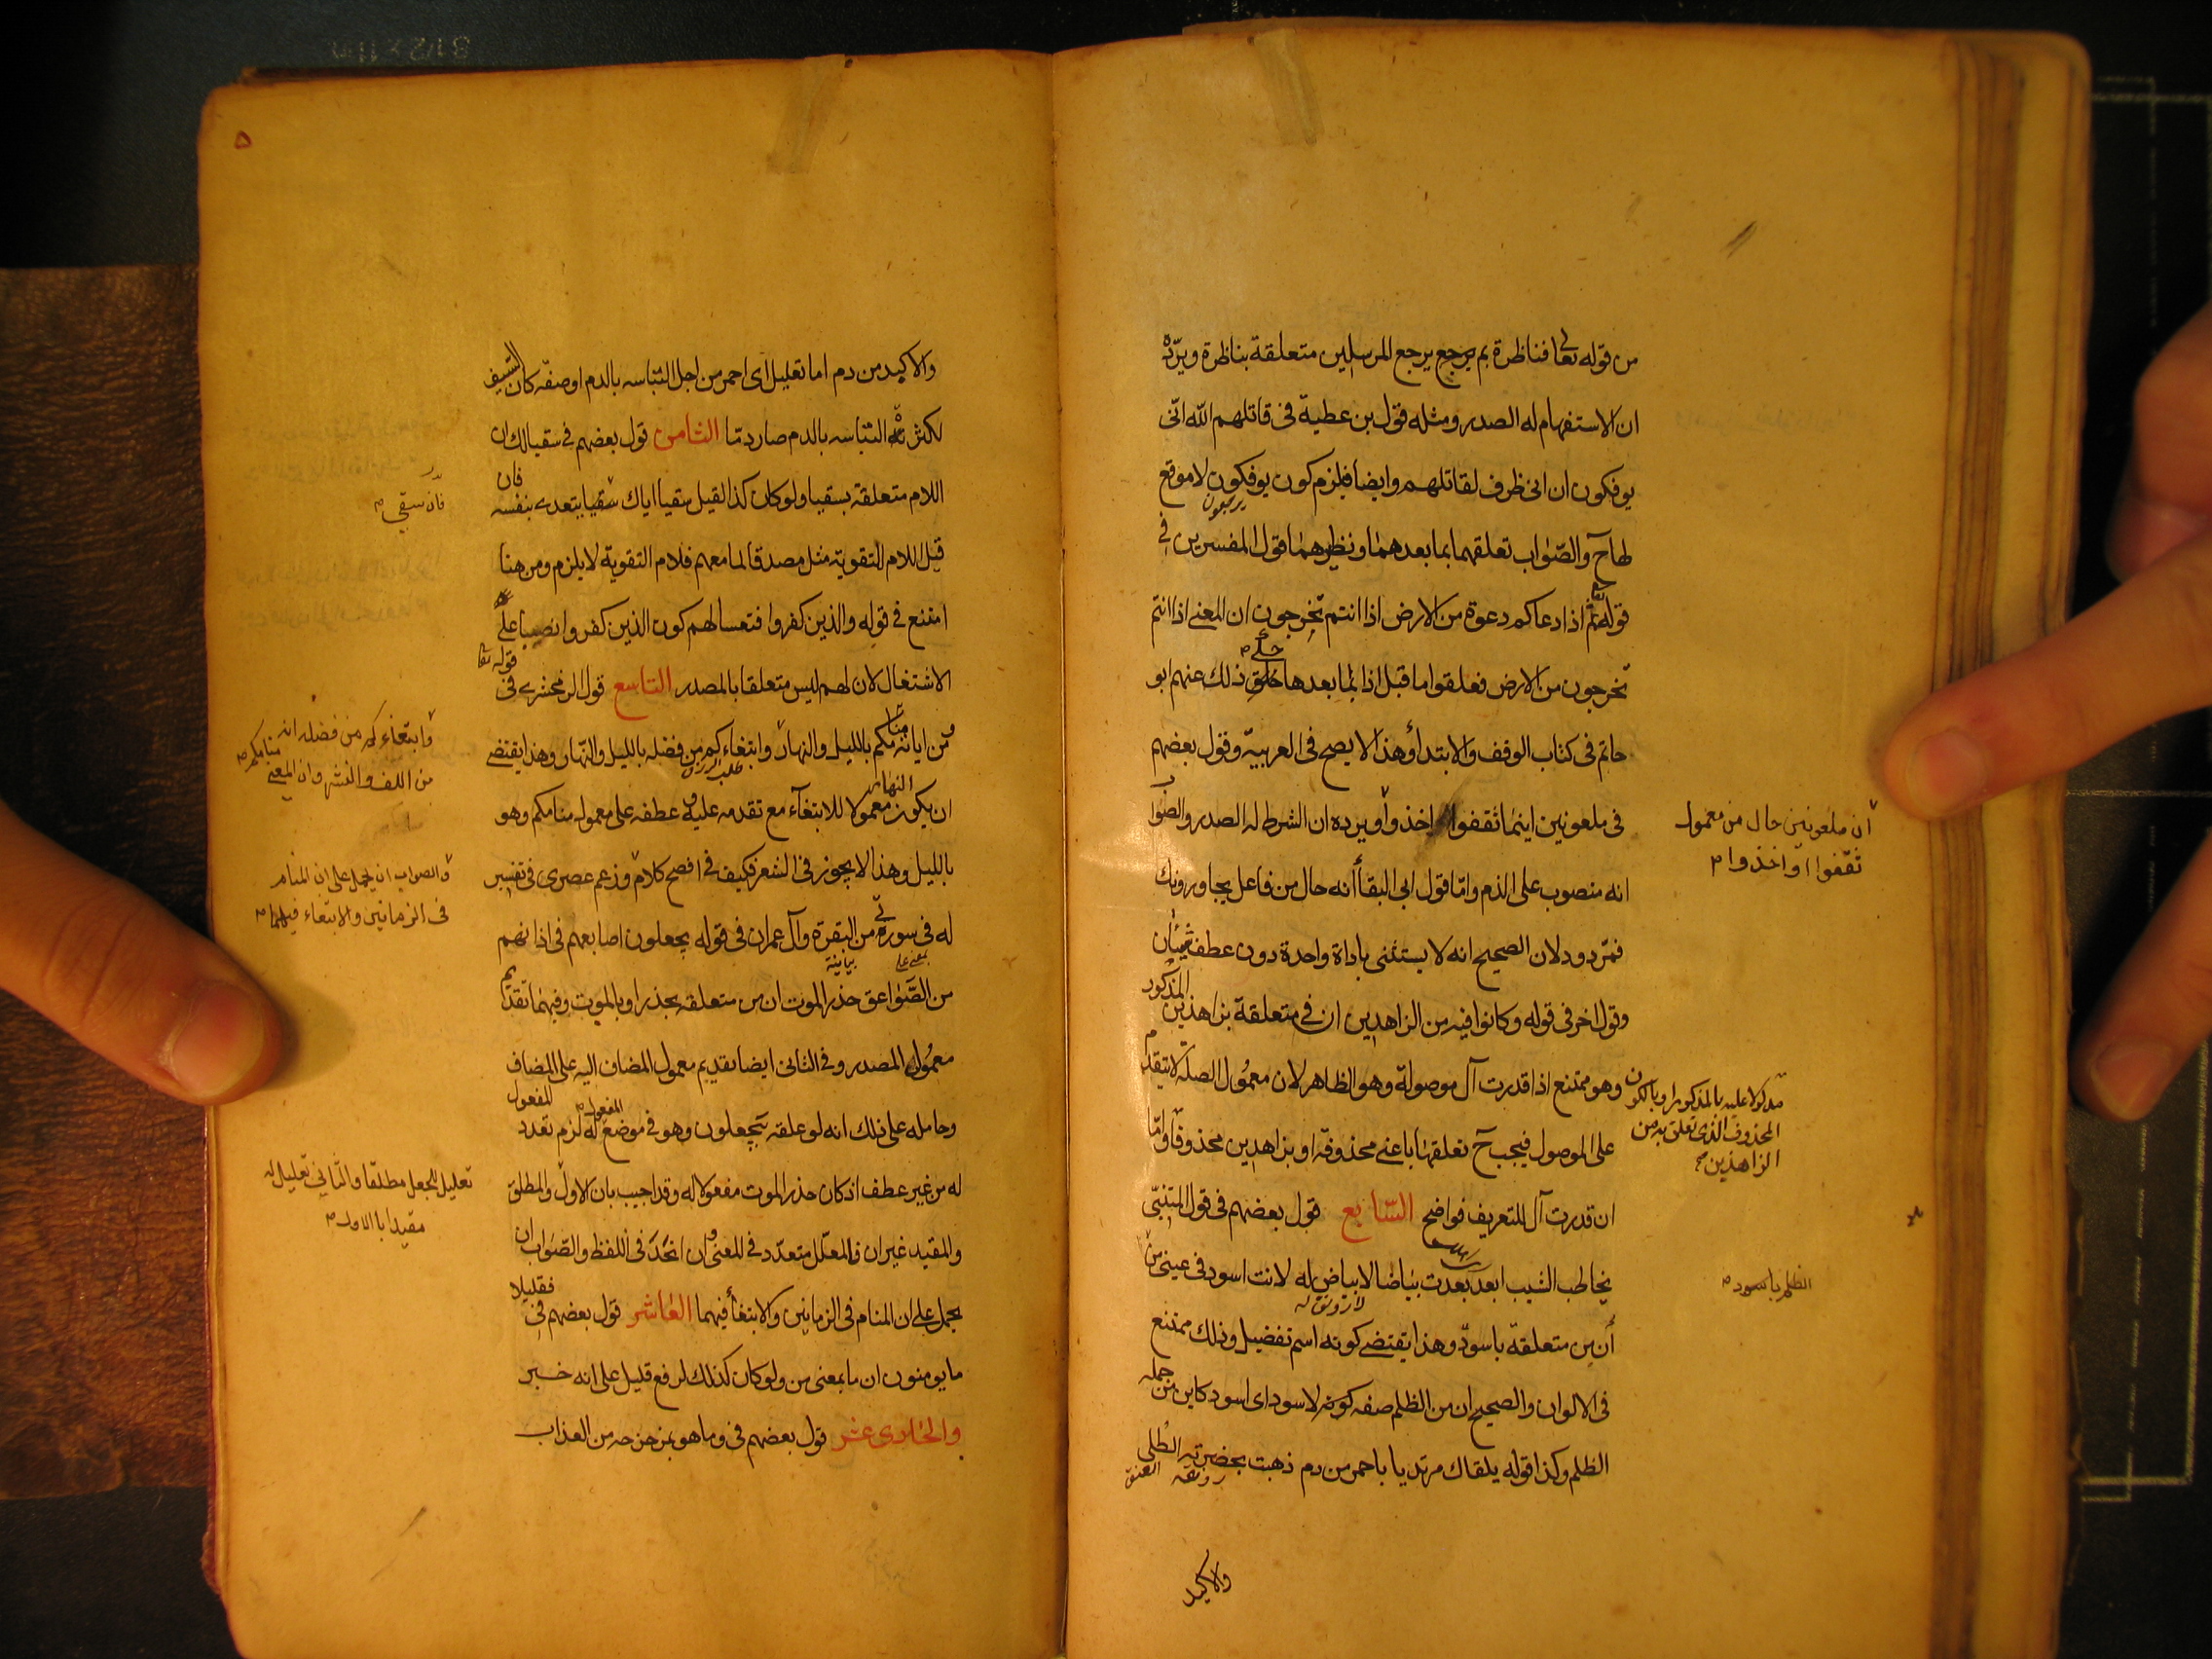 من قوله تعالى فناظرة بم يرجع يرجع المرسلين متعلقة بناظرة ويردّه
ان الاستفهام له الصدر ومثله قول بن عطية فى قاتلهم الله انّى
يوفكون ان انى ظرف لقاتلهم وايضا فيلزم كون يوفكون لا موقع
يرجعون
لها ح والصّواب تعلقهما بما بعدهما ونظيرهما قول المفسرين فى
قوله ثم اذا دعاكم دعوة من الارض اذا انتم تخرجون ان المعنى اذا انتم
تخرجون من الارض فعلقوا ما قبل اذا بما بعدها حكى ذلك عنهم ابو
حاتم فى كتاب الوقف والابتداء وهذا لا يصح فى العربيّة وقول بعضهم
فى ملعونين اينما ثقفوا اخذوا ويرده ان الشرط له الصدر والصّوا
انه منصوب على الذم وامّا قول ابى البقاء أنه حال من فاعل يجاورونك
فمردود لان الصحيح انه لا يستثنى باداة واحدة دون عطف شيئان
وقول اخر فى قوله وكانوا فيه من الزاهدين ان فى متعلقة بزاهدين
المذكور
وهو ممتنع اذا قدرت آل موصولة وهو الظاهر لان معمول الصلة لا يتقدم
على الموصول فيجب ح تعلقها باعنى محذوفة او بزاهدين محذوفا وامّا
ان قدرت آل للتعريف فواضح السّابع قول بعضهم فى قول المتنبّى
يخاطب الشيب ابعد بعدت بياضا لا بياض له لانت اسود فى عينى من
أن من متعلقة باسود وهذا يقتضى كونه اسم تفضيل وذلك ممتنع
فى الالوان والصحيح ان من الظلم صفة لاسود اى اسود كاين من جمله
الظلم وكذا قوله يلقاك مرتديا باحمر من دم ذهبت بخضرته الطلى
العنق
والاكيد
ان ملعونين حال من معمول
ثقفوا او اخذوا
مدلولا عليه بالمذكور او بالكون
المحذوف الذى تعلق به من
الزاهدين
الظلم باسود
٥
والاكيد من دم اما تعليل اى احمر من اجل التباسه بالدم او صفة كان السّيف
لكثرة التباسه بالدم صار دمّا الثامن قول بعضهم فى سقيا لك ان
اللام متعلقة بسقيا ولو كان كذا لقيل سقيا اياك فان سقيا يتعدى بنفسه
قيل اللام للتقوية مثل مصدقا لما معهم فلام التقوية لا يلزم ومن هنا
امتنع فى قوله والذين كفروا فتعسا لهم كون الذين كفروا نصبا على
الاشتغال لان لهم ليس متعلقا بالمصدر التاسع قول الزمخشرى فى
قوله تعا
ومن اياته منامكم بالليل والنهار وابتغاءكم من فضله بالليل والنّهار وهذا يقتضى
طلب الرزق
ان يكون النهار معمولا للابتغاء مع تقدمه عليه و عطفه على معمول منامكم وهو
بالليل وهذا لا يجوز فى الشعر فكيف فى افصح كلام وزعم عصرى فى تفسير
له فى سورتى من البقرة وآل عمران فى قوله يجعلون اصابعهم فى اذانهم
من الصّواعق حذر الموت ان من متعلقة بحذر او بالموت وفيهما تقديم
معمول المصدر وفى الثانى ايضا تقديم معمول المضاف اليه على المضاف
وحامله على ذلك انه لو علقه بيجعلون وهو فى موضع المفعول له لزم تعدد المفعول
له من غير عطف اذ كان حذر الموت مفعولا له وقد اجيب بان الاول والمطلق
والمقيد غيران فالمعلّل متعدّد فى المعنى وان اتحد فى اللفظ والصّواب ان
يحمل على ان المنام فى الزمانين والابتغاء فيهما العاشر قول بعضهم فى فقليلا
ما يومنون ان ما بمعنى من ولو كان كذلك لرفع قليل على انه خبر
والحادى عشر قول بعضهم فى وما هو بمزحزحه من العذاب
فان سقى
وابتغاءكم من فضله انه
من اللف والنشر وان المعنى منامكم
والصواب ان يحمل على ان المنام
فى الزمانين والابتغاء فيهما
تعليل للجعل مطلقا والثانى تعليل له
مقيدا بالاول